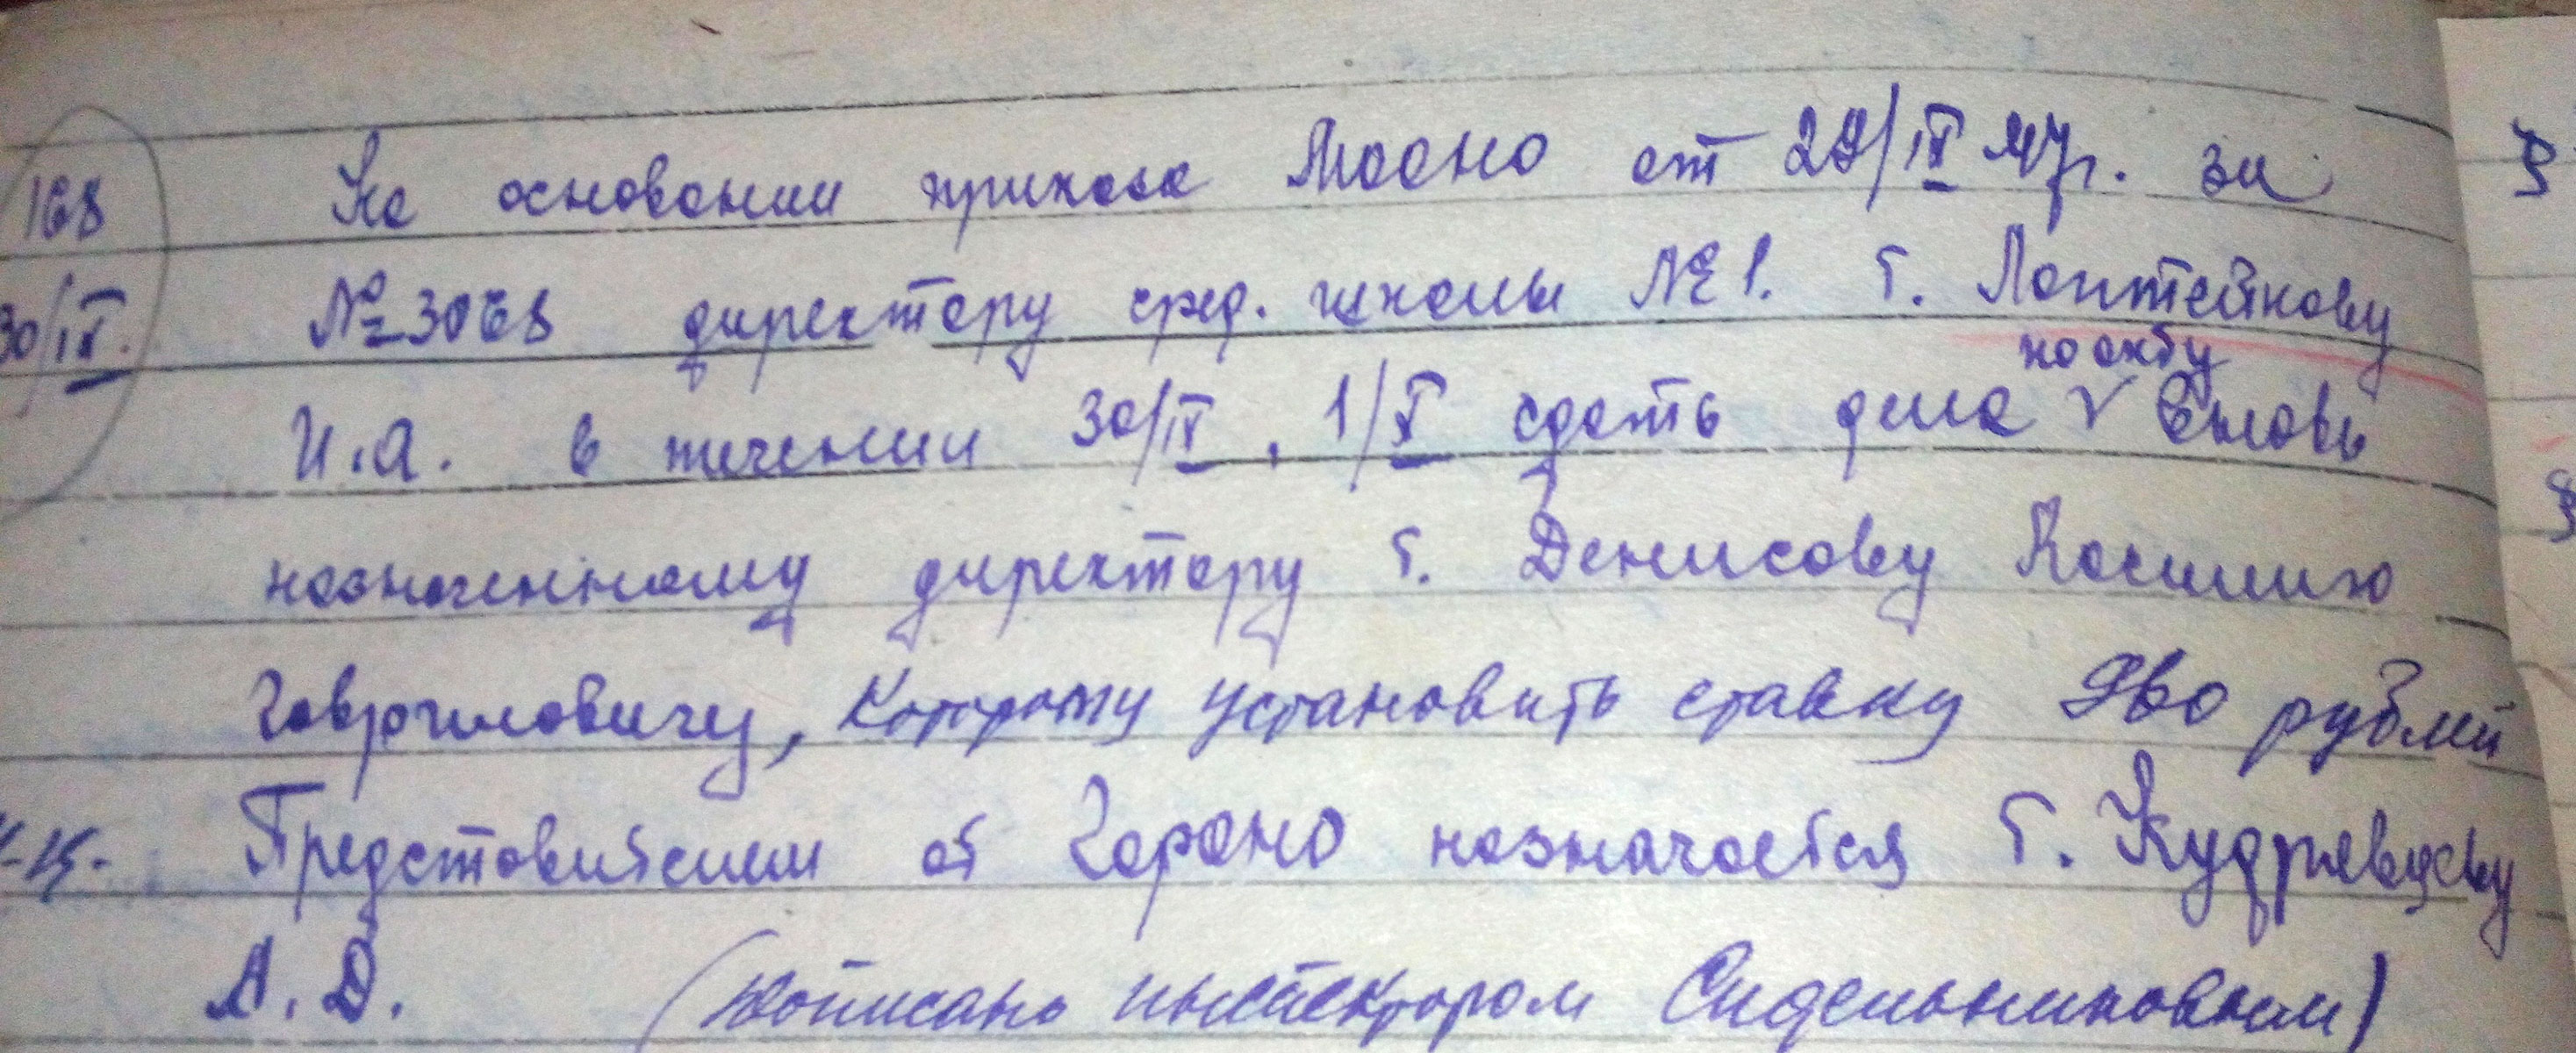 168 На основании приказа Мооно от 29/IX 47г. за
30/IX. №3068 директору сред. школы №1. т. Лоптейкову
по акту
И.А. в течении 30/IX, 1/X сдать дела V вновь
назначенному директору т. Денисову Василию
Гавриловичу, которому установить ставку рублей
Представителем от Гороно назначается т. Кудрявцеву
А.Д. (записано инспектором Сидельниковым)